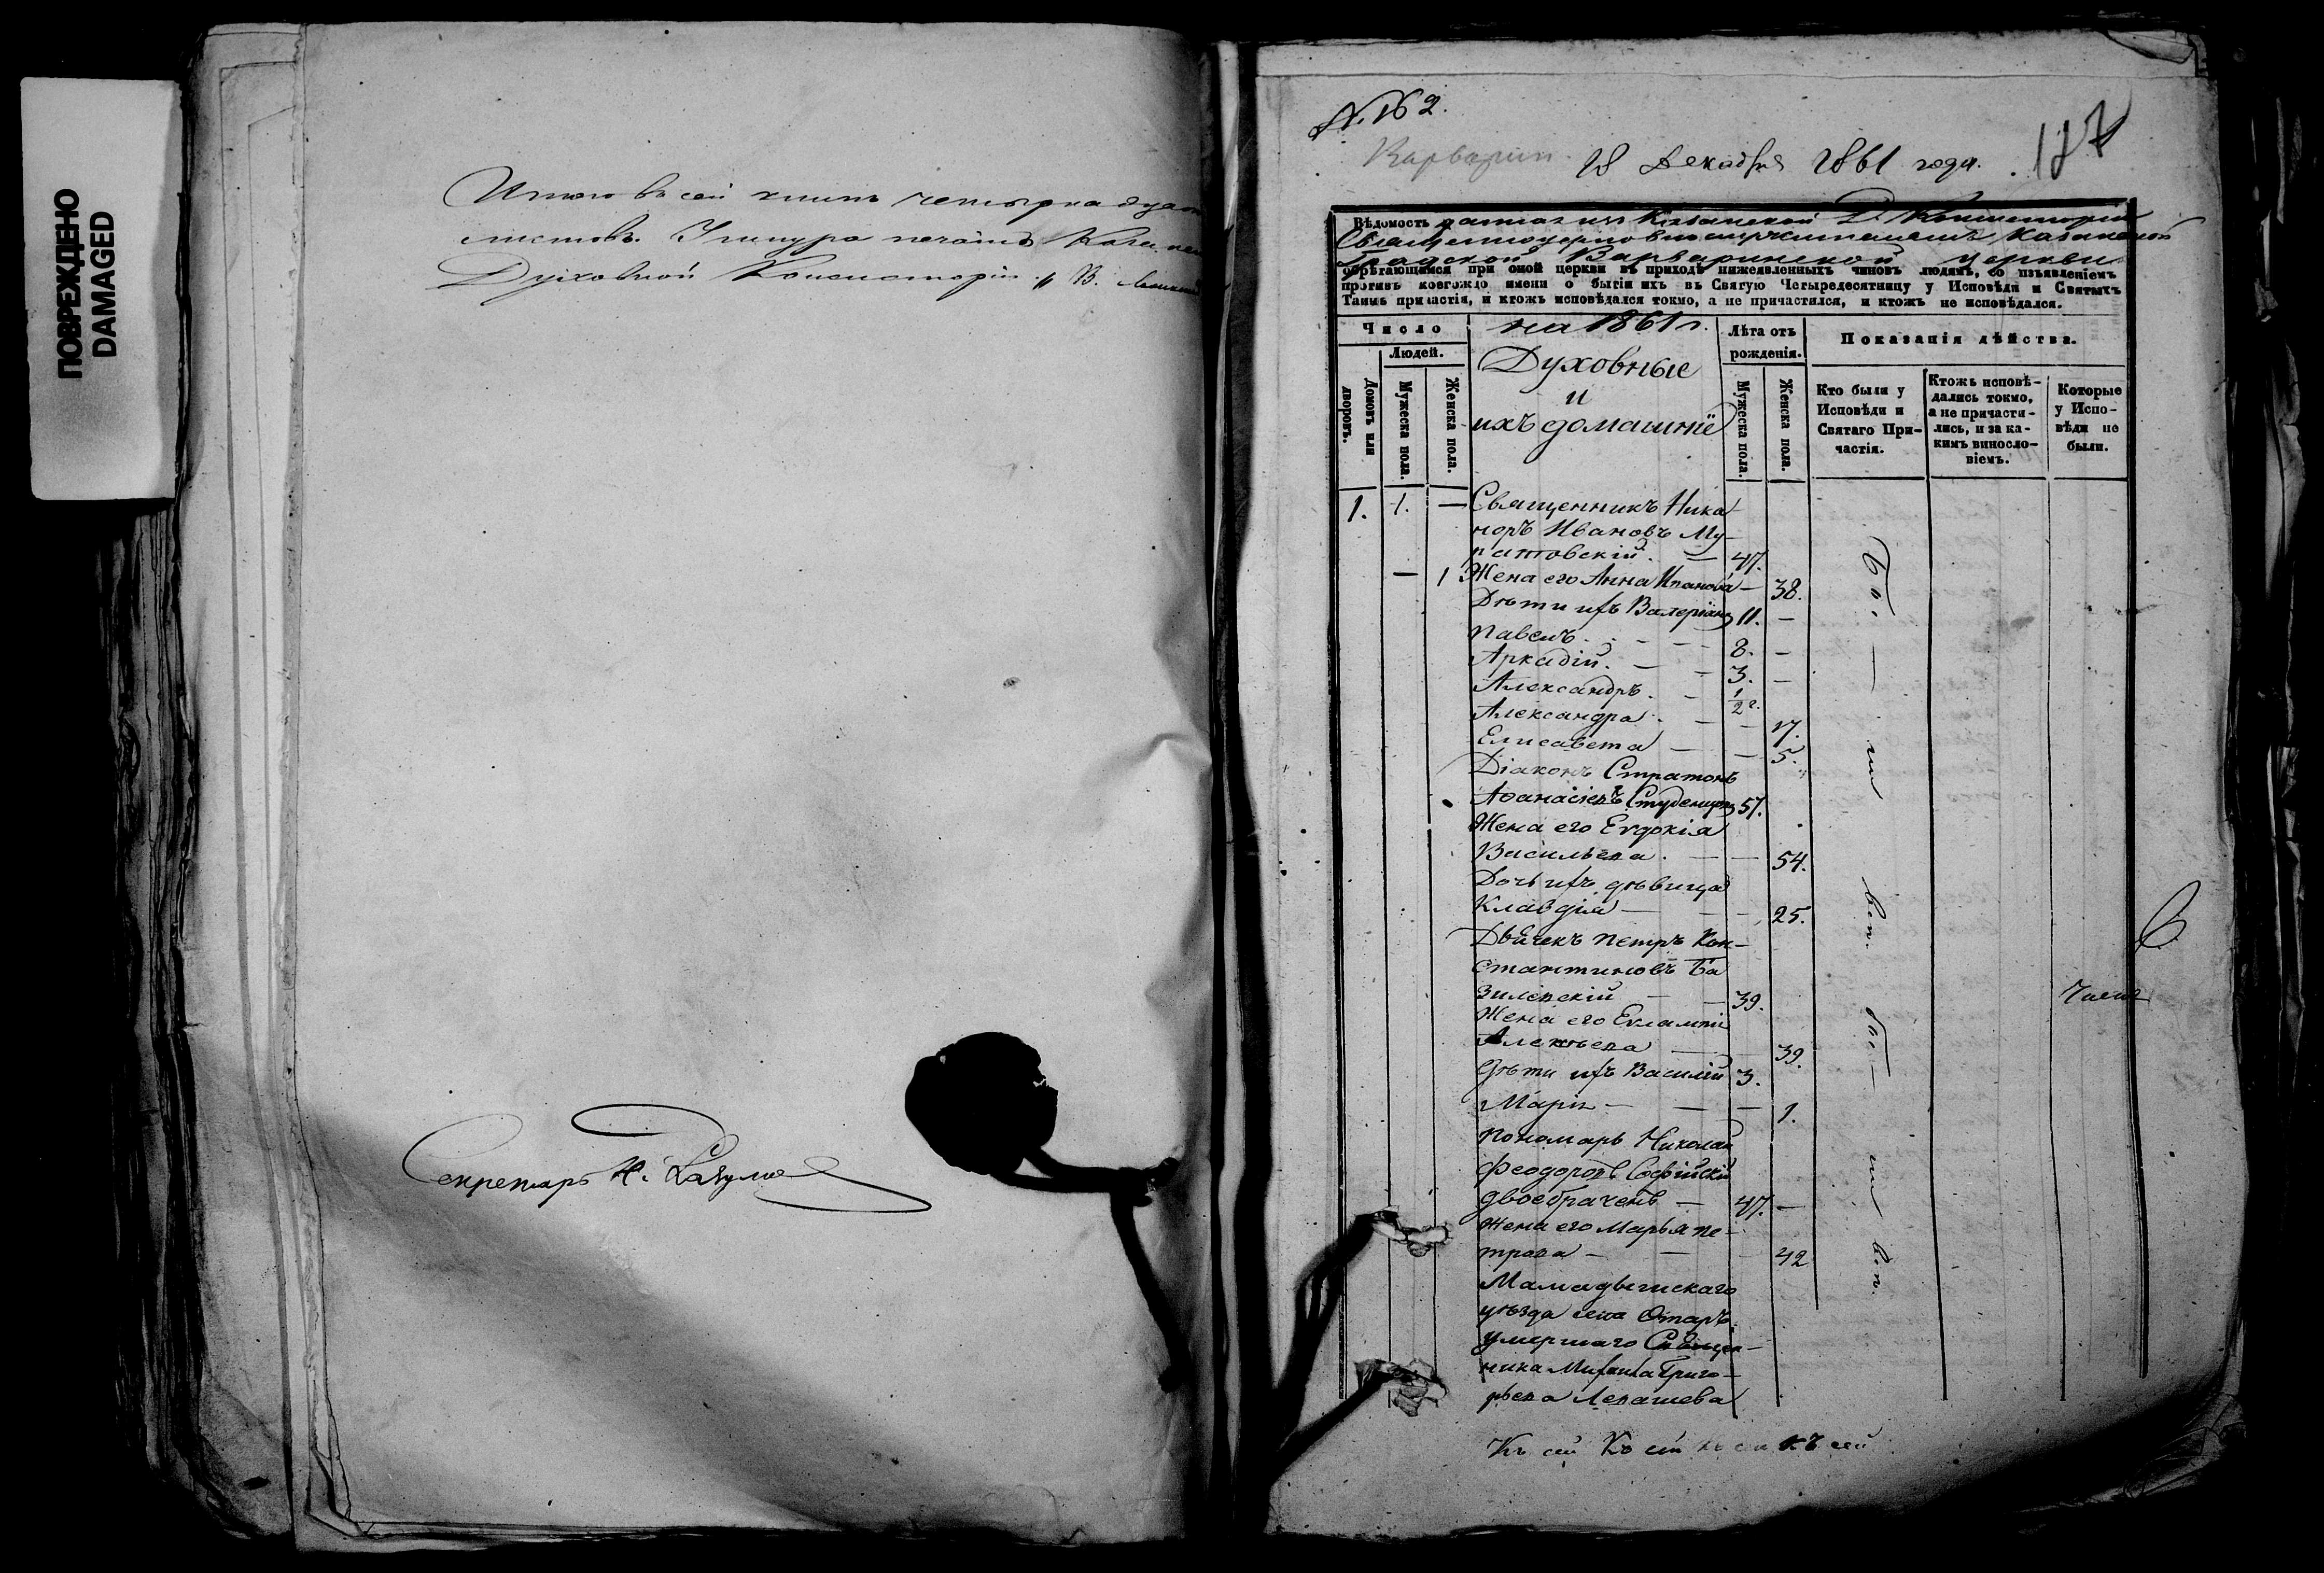 ПОВРЕЖДЕНО
DAMAGED
Итого въ сей книгѣ четырнадцать
листовъ. У шнура печать Казанской
Духовной Консисторіи.
Секретарь Н. Разумов
№ 162.
Варварин.
18 Декабря 1861 года.
127
Вѣдомость данная изъ Казанской Д. Консисторіи
Священноцерковнослужителямъ Казанской
Градской Варваринской церкви
обрѣтающимся при оной церкви въ приходѣ нижеявленныхъ чиновъ людямъ, со изъявленіемъ
противъ коегождо имени о бытіи ихъ въ Святую Четыредесятницу у Исповѣди и Святыхъ
Таинъ причастія, и ктожъ исповѣдался токмо, а не причастился, и ктожъ не исповѣдался.
Число
на 1861 г.
Лѣта отъ рожденія.
Показанія дѣйства.
Людей.
Домовъ или дворовъ.
Мужеска пола.
Женска пола.
Духовные
и
ихъ домашніе
Мужеска пола.
Женска пола.
Кто были у Исповѣди и Святаго Причастія.
Ктожъ исповѣдались токмо, а не причастились, и за какимъ винословіемъ.
Которые у Исповѣди не были.
1. 1. — Священникъ Ника
норъ Ивановъ Му-
ратовскій. — 47.
— 1 Жена его Анна Иванова — 38.
Дѣти ихъ Валеріанъ 11. —
Павелъ. — — 8. —
Аркадій. — — 3. —
Александръ. — 1/2 г.
Александра. — — 17.
Елисавета — — 5.
Діаконъ Стратонъ
Аѳанасіевъ Студенцовъ 57.
Жена его Евдокія
Васильева. — — 54.
Дочь ихъ дѣвица
Клавдія — — 25.
Дьячекъ Петръ Кон-
стантиновъ Ба
зилевскій — — 39.
Жена его Евлампія
Алексѣева — 39.
Дѣти ихъ Василій 3.
Марія — — — 1.
Пономарь Николай
Феодоровъ Софійскій
двоебраченъ — 47. —
Жена его Марья Пе-
трова — — — 42
Мамадышскаго
уѣзда села Отаръ
умершаго Священ-
ника Михаила Григо-
рьева Левашева
Бы — ли исп. бы — ли исп.
Къ сей Къ сей къ сей къ сей